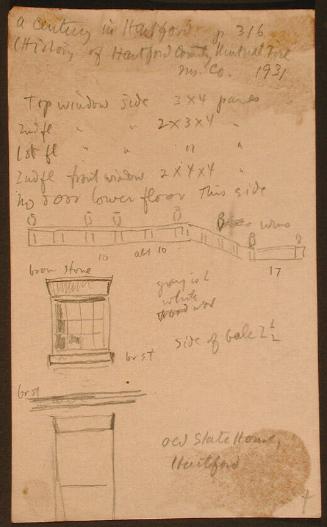 A century in Hartford p 316
(History of Hartford County Mutual Fire
Ins. Co. 1931
Top window side 3 x 4 panes
2nd fl " " 2 x 3 x 4 "
1st fl " " " "
2nd fl front window 2 x 4 x 4 "
no door lower floor this side
10 abt 10
17
brown stone
grayish
white
wood work
br st
side of gable 2 ½
br st
old State House,
Hartford